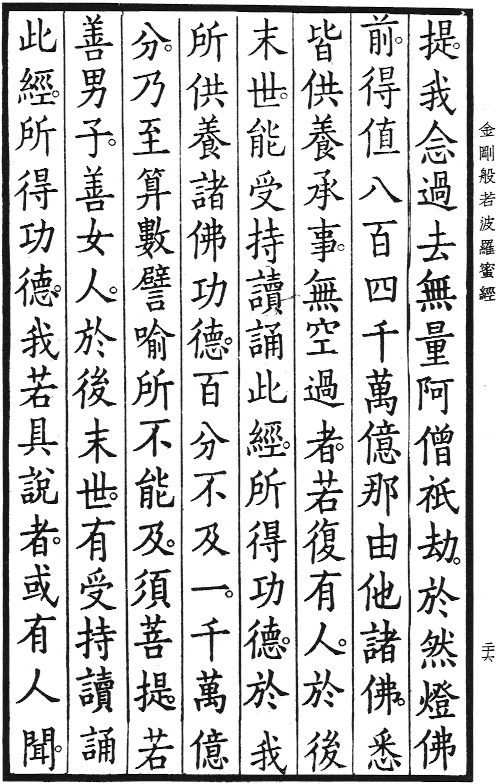 金剛般若波羅蜜經
二六
提。我念過去無量阿僧祇劫。於然燈佛
前。得值八百四千萬億那由他諸佛。悉
皆供養承事。無空過者。若復有人。於後
末世。能受持讀誦此經。所得功德。於我
所供養諸佛功德。百分不及一。千萬億
分。乃至算數譬喻所不能及。須菩提。若
善男子。善女人。於後末世。有受持讀誦
此經。所得功德。我若具說者。或有人聞。